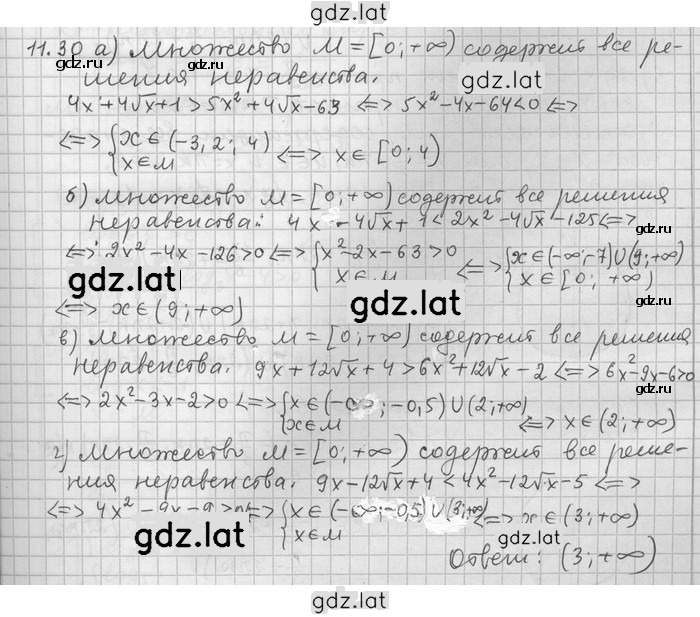 gdz.lat
11.30 а) Множество M=[0;+∞) содержит все ре-
шения неравенства.
gdz.lat
4x+4√x+1>5x²+4√x-63 <=> 5x²-4x-64<0 <=>
<=> {x∈(-3,2; 4) x∈M <=> x∈[0;4)
gdz.lat
б) множество M=[0;+∞) содержит все решения
неравенства: 4x-4√x+1<2x²-4√x-125<=>
<=> 2x²-4x-126>0 <=> {x²-2x-63>0 x∈M <=> {x∈(-∞;-7)∪(9;+∞) x∈[0;+∞)
gdz.lat
gdz.lat
<=> x∈(9;+∞)
в) множество M=[0;+∞) содержит все решения
неравенства. 9x+12√x+4>6x²+12√x-2 <=> 6x²-9x-6>0
<=> 2x²-3x-2>0 <=> {x∈(-∞;-0,5)∪(2;+∞) x∈M <=> x∈(2;+∞)
г) множество M=[0;+∞) содержит все реше-
ния неравенства. 9x-12√x+4<4x²-12√x-5 <=>
<=> 4x²-9x-9>0 <=> {x∈(-∞;-0,5)∪(3;+∞) x∈M <=> x∈(3;+∞)
gdz.lat
gdz.lat
Ответ: (3;+∞)
gdz.lat